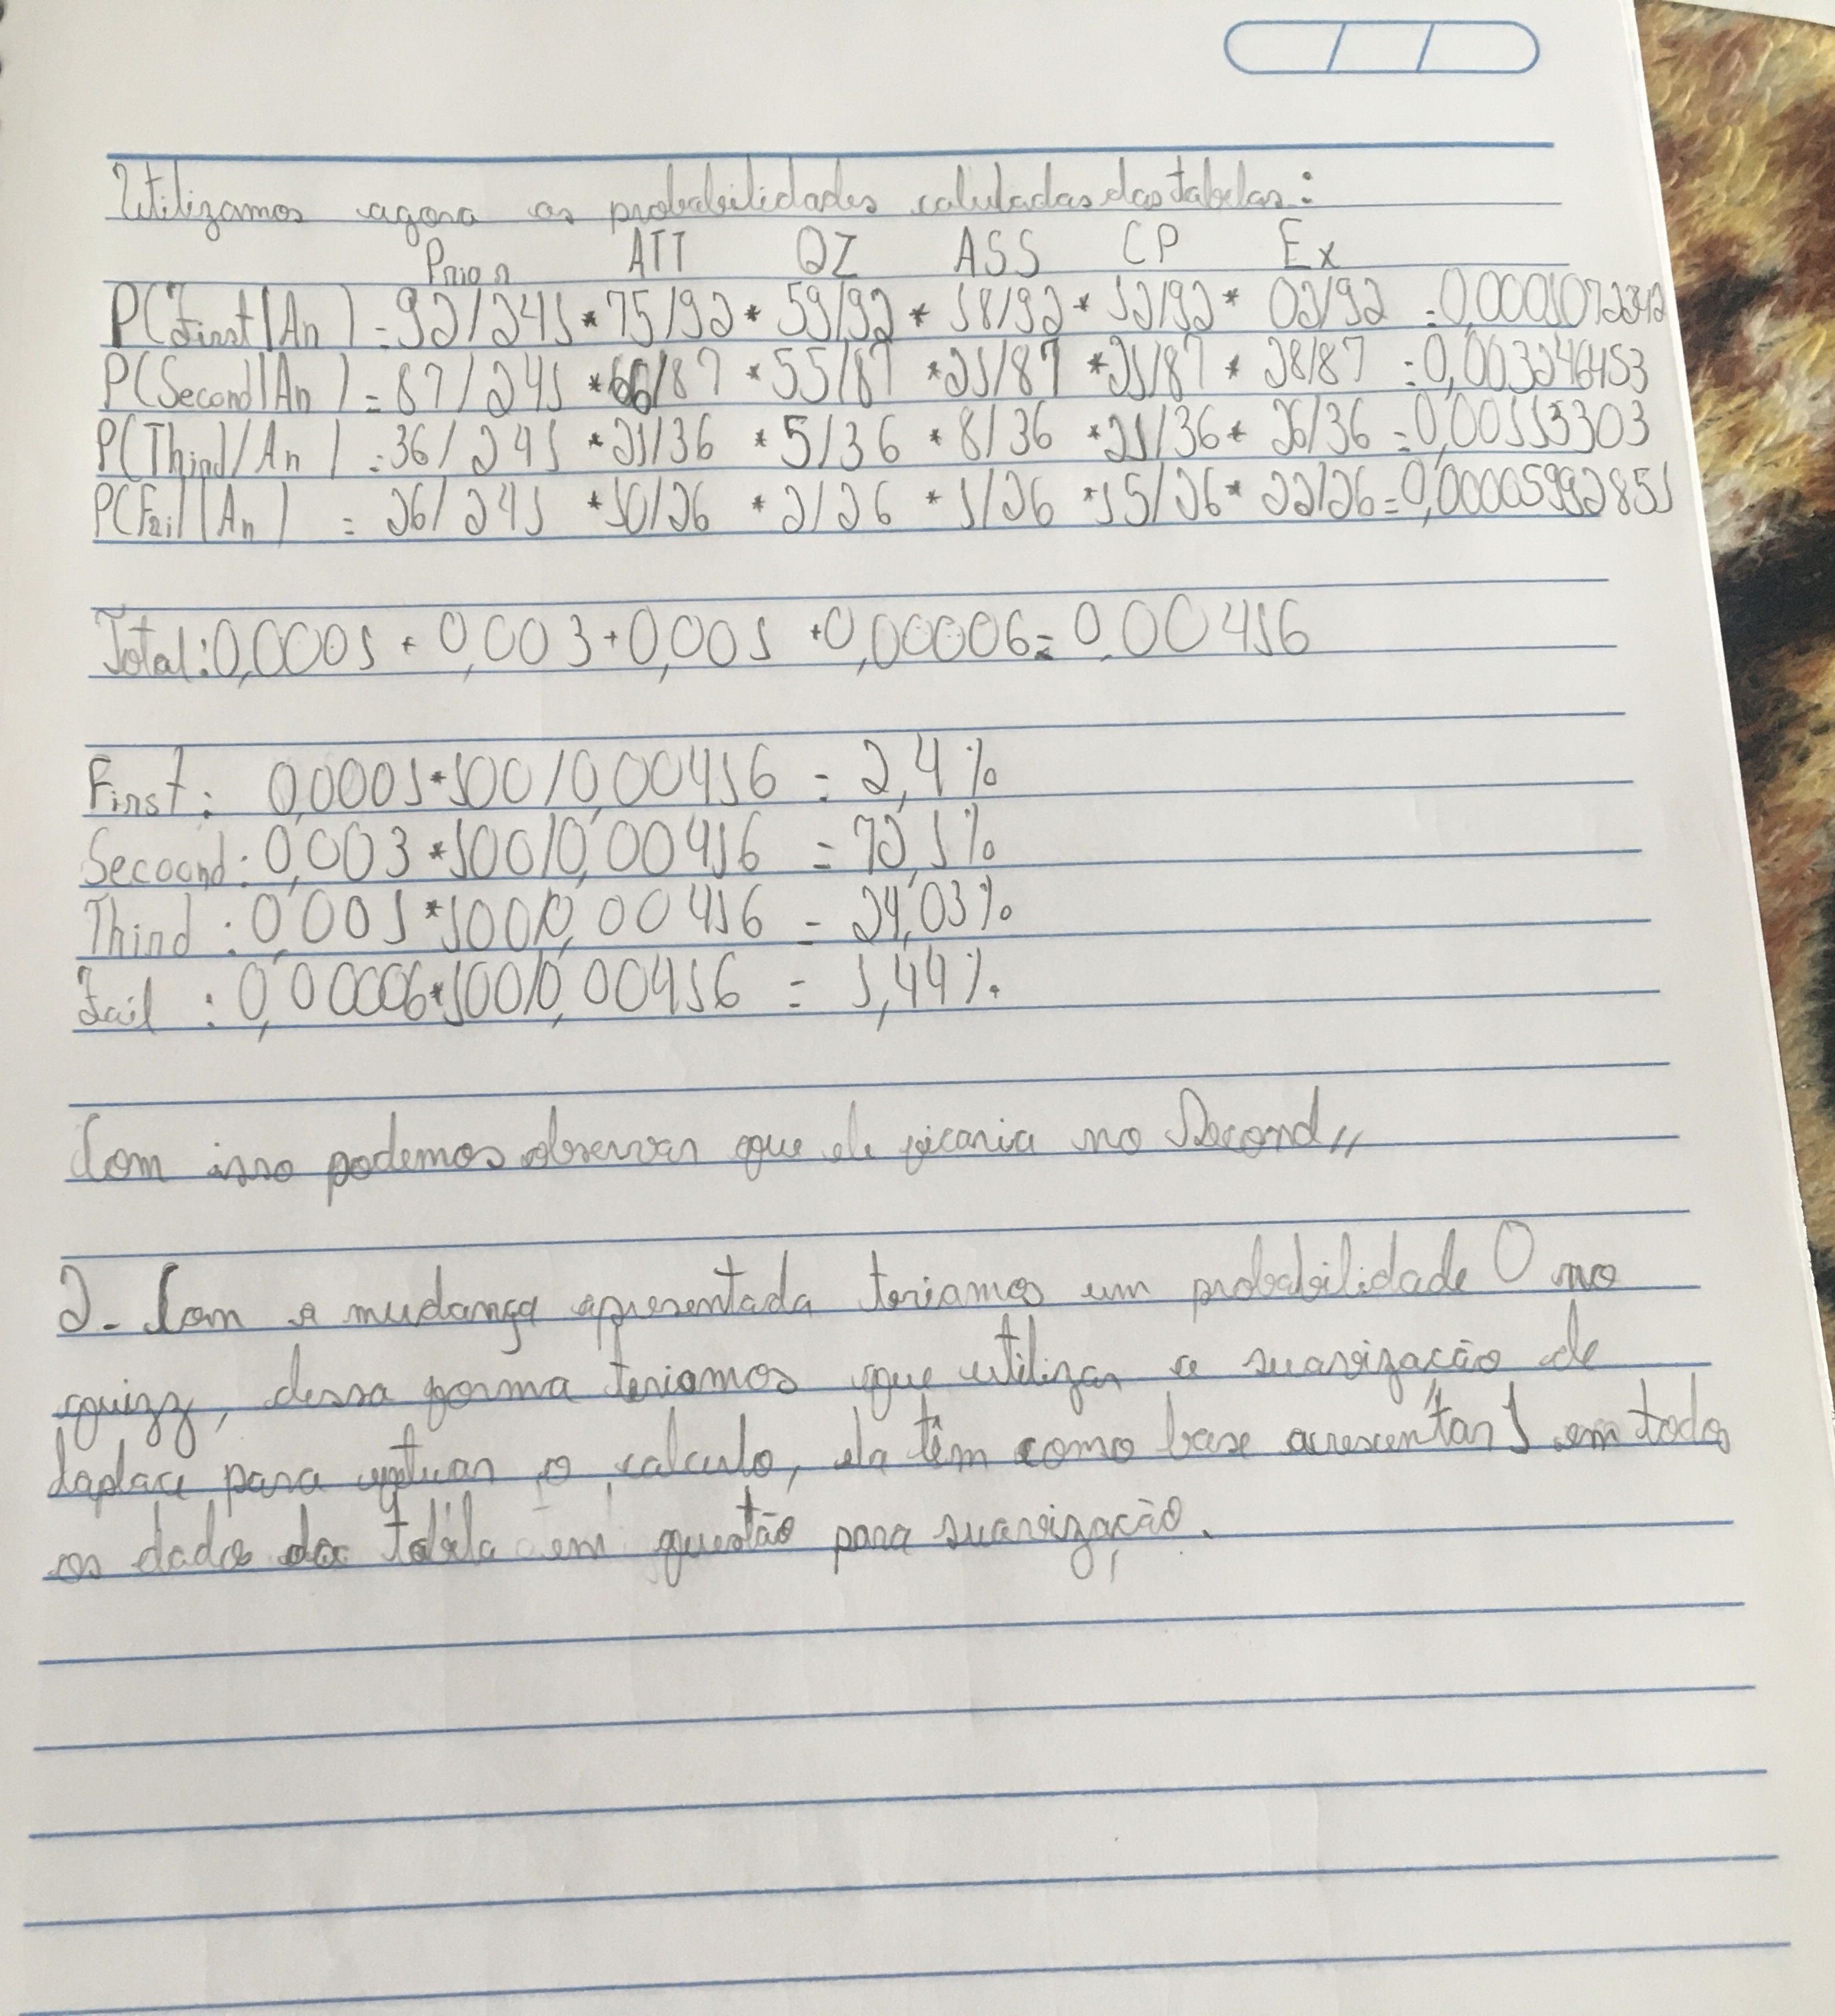 Utilizamos agora as probabilidades caluladas das tabelas:
Prior ATT QZ ASS CP Ex
P(First|An) = 92/241 * 75/92 * 59/92 * 18/92 * 12/92 * 02/92 = 0,0001072312
P(Second|An) = 87/241 * 66/87 * 55/87 * 21/87 * 21/87 * 28/87 = 0,003246153
P(Third/An) = 36/241 * 21/36 * 5/36 * 8/36 * 21/36 * 26/36 = 0,00113303
P(Fail|An) = 26/241 * 10/26 * 2/26 * 1/26 * 15/26 * 22/26 = 0,00005992851
Total: 0,0001 + 0,003 + 0,001 + 0,00006 = 0,00416
First: 0,0001*100/0,00416 = 2,4%
Secoond: 0,003*100/0,00416 = 72,1%
Third: 0,001*100/0,00416 = 24,03%
Fail: 0,00006*100/0,00416 = 1,44%.
Com isso podemos observar que ele ficaria no Second,,
2- Com a mudança apresentada teriamos um probabilidade 0 no
quizz, dessa forma teriamos que utilizar a suavização de
Laplace para efetuar o calculo, ela têm como base acrescentar 1 em todos
os dados da tabela em questão para suavização.